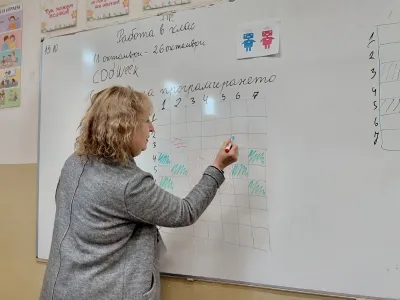 15.10
Работа в клас
11 октомври - 26 октомври
CODWeek
програмирането
1 2 3 4 5 6 7
3
4
5
1
2
3
4
5
6
7